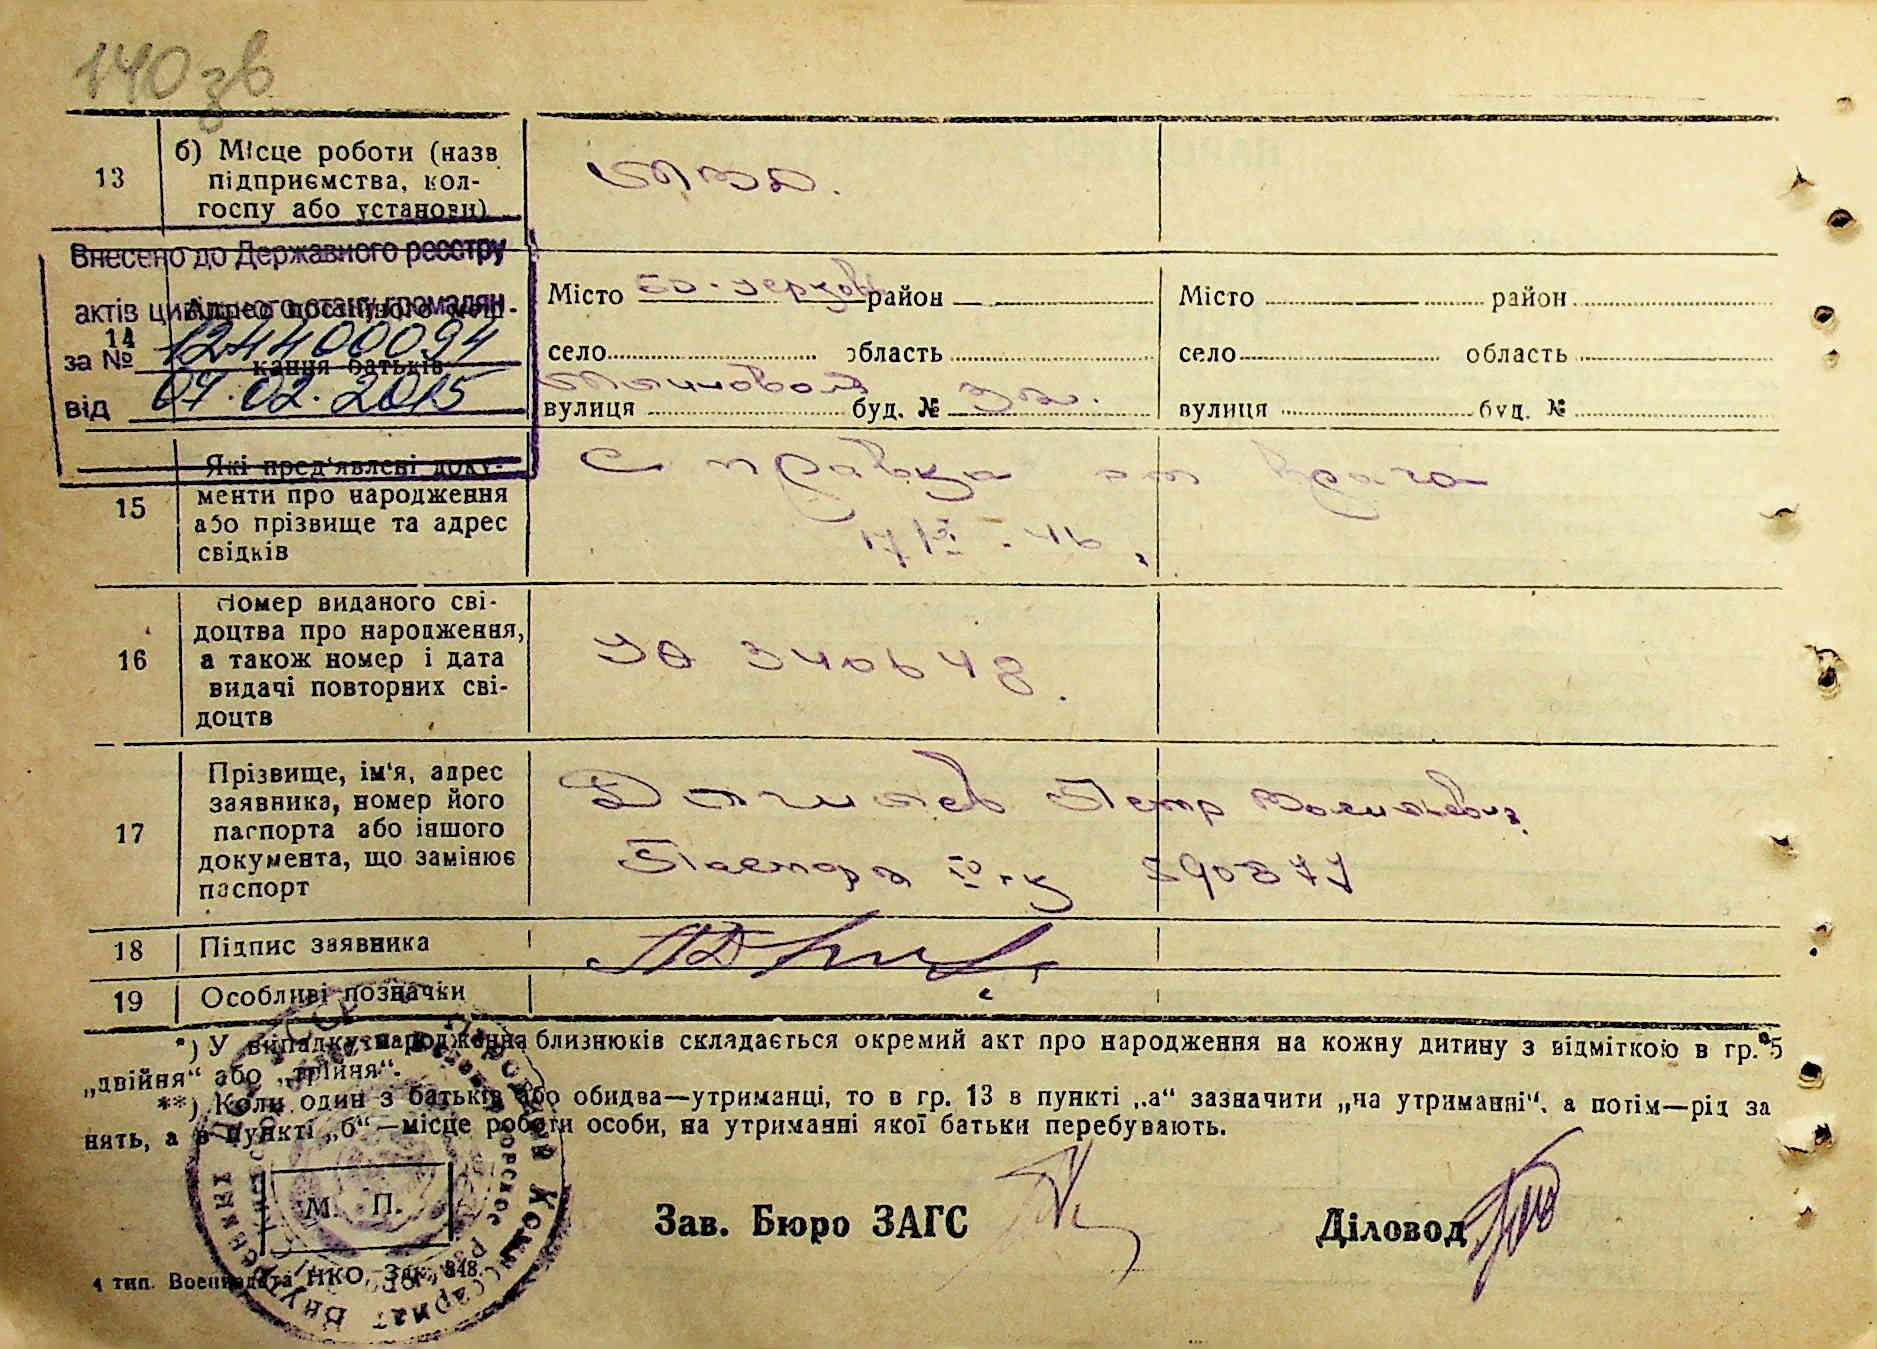 140 зв
13
б) Місце роботи (назв
підприємства, кол-
госпу або установи)
Внесено до Державного реєстру
актів цивільного стану громадян
за № 12440 0094
від 07.02.2015
14
Адрес постійного меш-
кання батьків
Місто Б-Церковь район
село область
вулиця буд. № 32.
Місто район
село область
вулиця буд. №
15
Які пред'явлені доку-
менти про народження
або прізвище та адрес
свідків
Справка от врача
16
Номер виданого сві-
доцтва про народження,
а також номер і дата
видачі повторних сві-
доцтв
340648.
17
Прізвище, ім'я, адрес
заявника, номер його
паспорта або іншого
документа, що замінює
паспорт
Петр
Паспорт
18
Підпис заявника
19
Особливі позначки
*) У випадку народження близнюків складається окремий акт про народження на кожну дитину з відміткою в гр. 5
„двійня“ або „трійня“.
**) Коли один з батьків або обидва—утриманці, то в гр. 13 в пункті „а“ зазначити „на утриманні“, а потім—рід за
нять, а в пункті „б“—місце роботи особи, на утриманні якої батьки перебувають.
М. П.
Зав. Бюро ЗАГС
Діловод
4 тип. Воениздата НКО, Зак. 848.